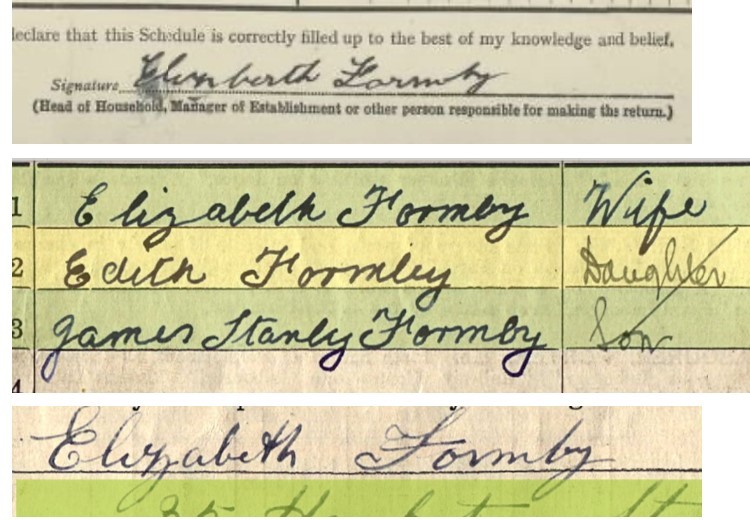 declare that this Schedule is correctly filled up to the best of my knowledge and belief.
Signature Elizeberth Formby
(Head of Household, Manager of Establishment or other person responsible for making the return.)
1 Elizabeth Formby Wife
2 Edith Formley Daughter
3 James Stanly Formby Son
4
Elizabeth Formby